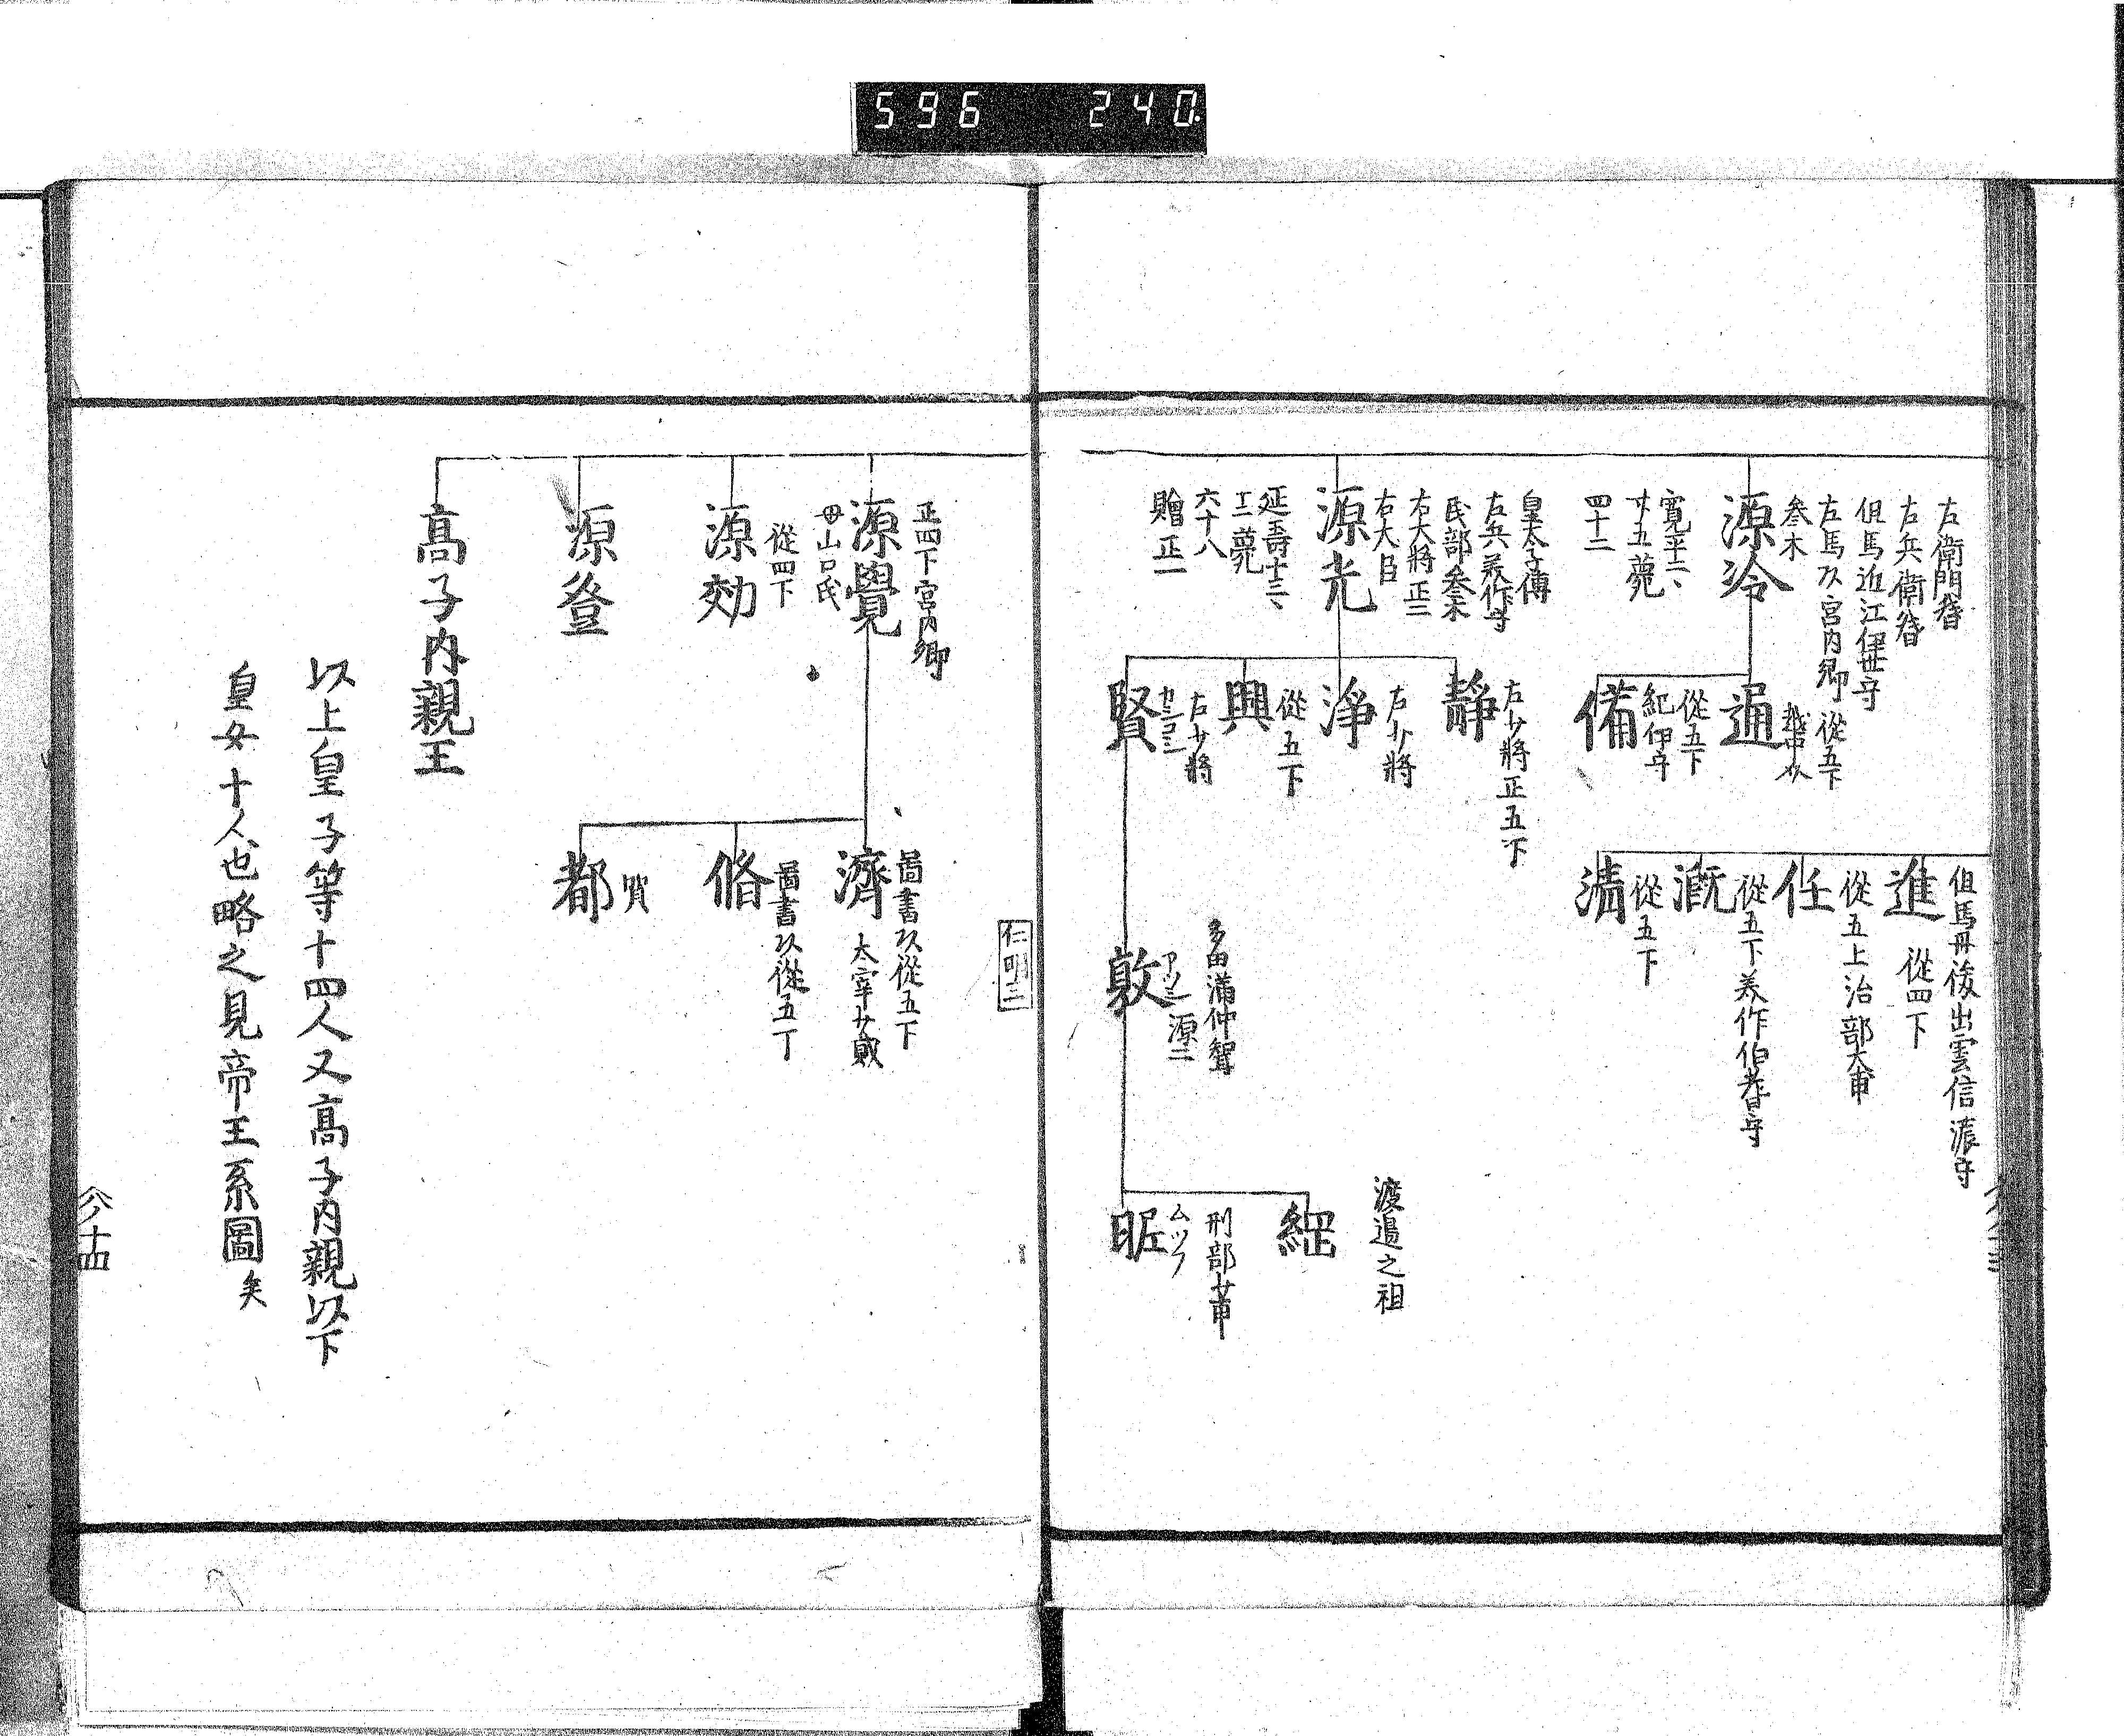 596 240
左衛門督
右兵衛督
但馬近江伊世守
左馬頭宮内卿
参木
源冷
寛平二、
廿五薨
四十二
從五下
通
從五下
紀伊守
備
但馬丹後出雲信濃守
從四下
進
從五上治部大甫
任
從五下美作伯耆守
漑
從五下
清
皇太子傳
左兵美作守
民部参木
右大將正二
右大臣
源光
延喜十三、
六十八
贈正一
左少將正五下
静
左少將
淨
從五下
興
左少將
賢
多田滿仲聟
源二
敦
渡邉之祖
綱
刑部少甫
昵
仁明三
正四下宮内卿
源覺
母山口氏
從四下
源効
源登
高子内親王
圖書頭從五下
太宰少貳
濟
圖書頭從五下
脩
都
以上皇子等十四人又高子内親以下
皇女十人也略之見帝王系圖矣
八ノ十四